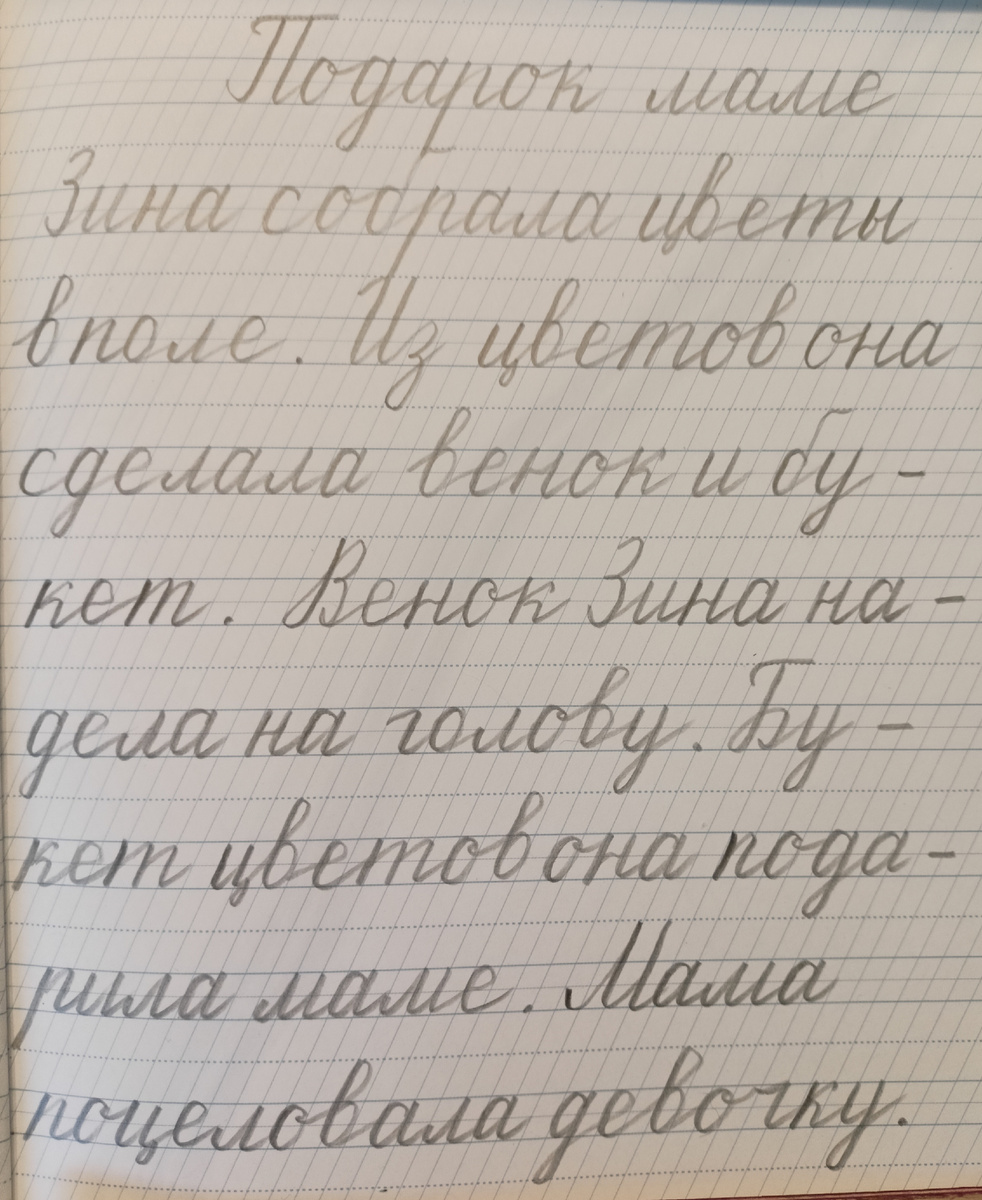 Подарок маме
Зина собрала цветы
в поле. Из цветов она
сделала венок и бу-
кет. Венок Зина на-
дела на голову. Бу-
кет цветов она пода-
рила маме. Мама
поцеловала девочку.